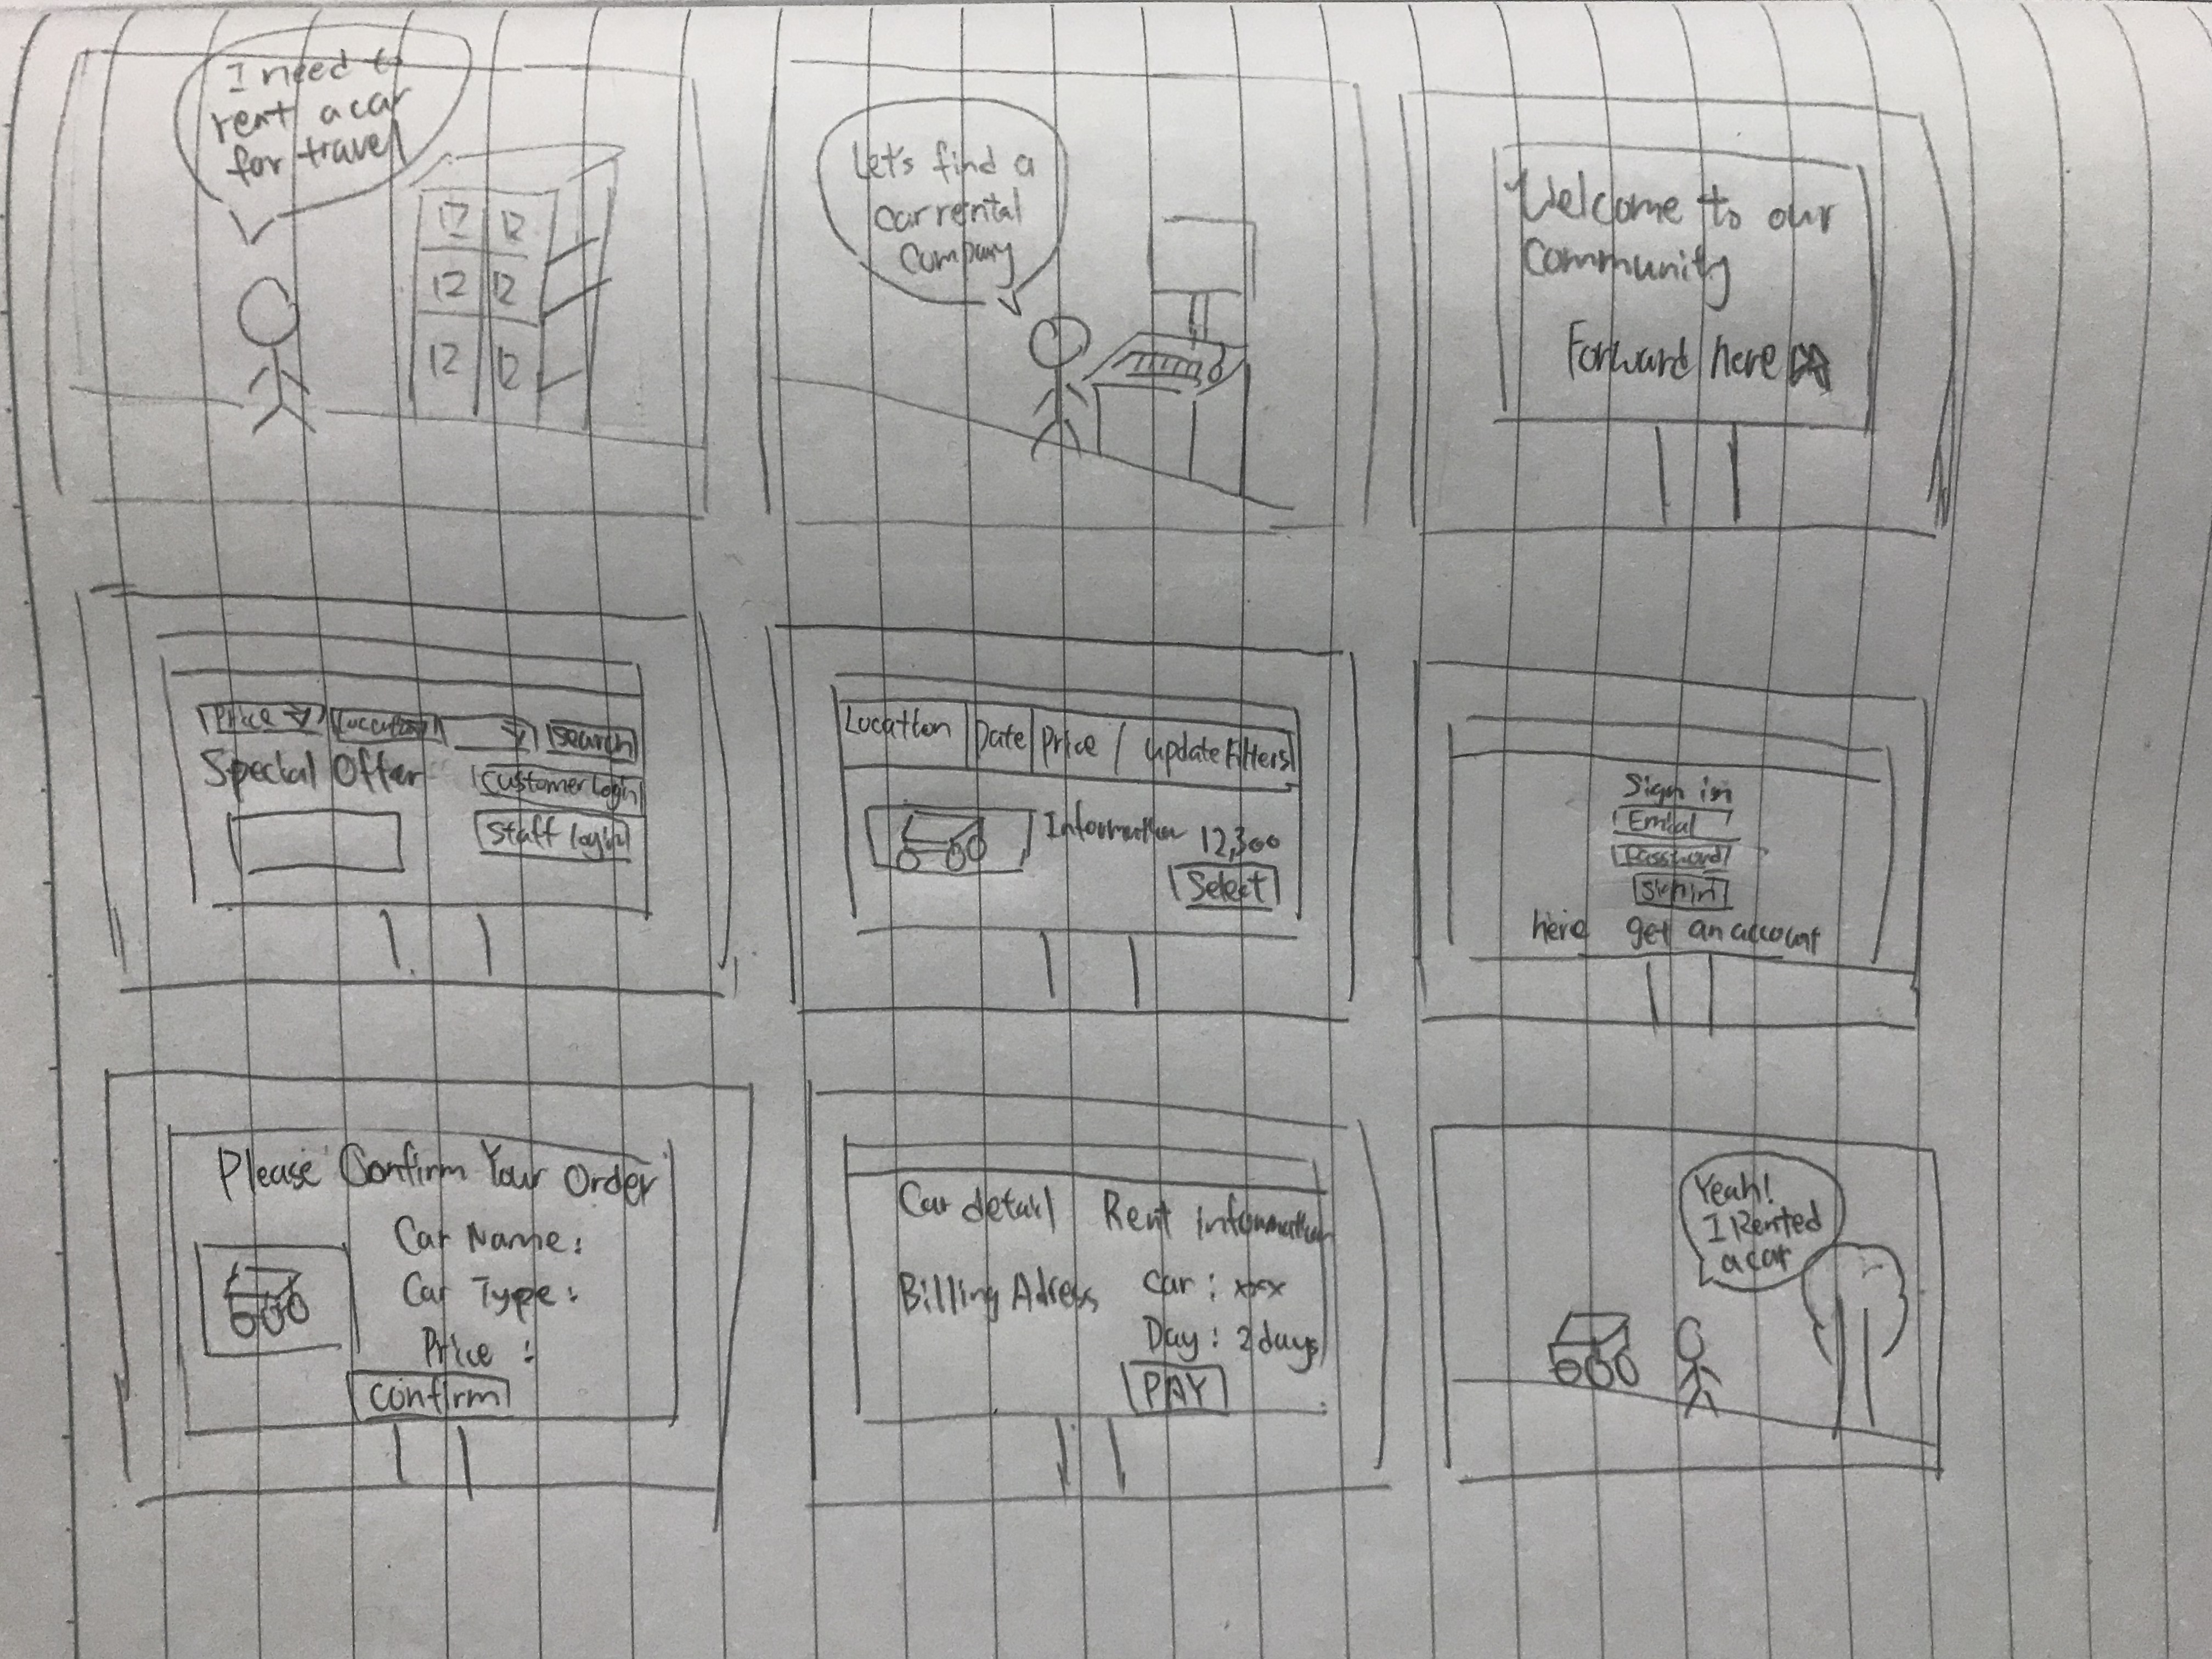 I need to
rent a car
for travel
12 12
12 12
12 12
Let's find a
car rental
company
Welcome to our
Community
Forward here
Price Location Search
Special Offer Customer Login
Staff login
Location Date Price update Filters
Information 12,300
Select
Sign in
Email
Password
Sign in
here get an account
Please Confirm Your Order
Car Name:
Car Type:
Price:
Confirm
Car detail Rent Information
Billing Adress Car: xxx
Day: 2days
PAY
Yeah!
I Rented
a car